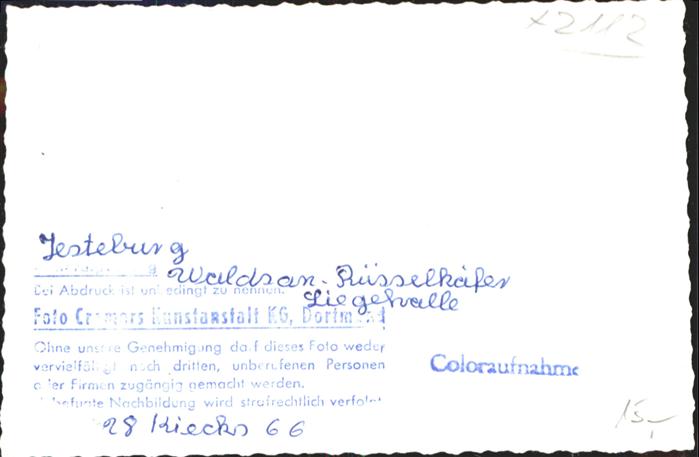 x2112
Jesteburg
Waldsan. Rüsselkäfer
Bei Abdruck ist unbedingt zu nennen:
Liegehalle
Foto Cramers Kunstanstalt KG, Dortmund
Ohne unsere Genehmigung darf dieses Foto weder
vervielfältigt noch dritten, unberufenen Personen
oder Firmen zugängig gemacht werden.
Unbefugte Nachbildung wird strafrechtlich verfolgt
Coloraufnahme
28 66
15,-